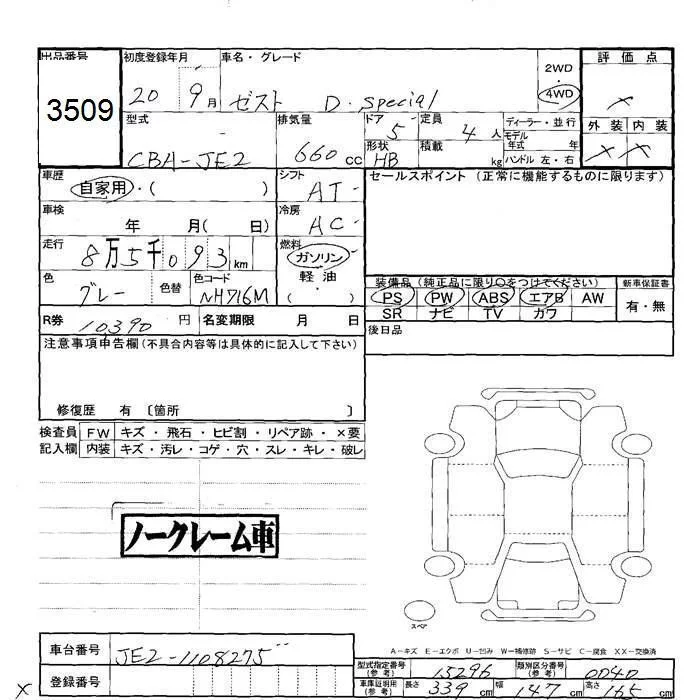 出品番号 初度登録年月 車名・グレード 評価点
3509 20 9月 ゼスト D・special 2WD・4WD ×
型式 排気量 ドア 定員 ディーラー・並行 外装 内装
CBA-JE2 660cc 5 4人 モデル年式 年 × ×
形状 HB 積載 kg ハンドル 左・右
車歴 自家用・( ) シフト AT セールスポイント (正常に機能するものに限ります)
車検 年 月( 日) 冷房 AC
走行 8万5千093km 燃料 ガソリン・軽油・( )
色 グレー 色替 色コード NH716M 装備品(純正品に限り○をつけてください) 新車保証書
PS PW ABS エアB AW 有・無
SR ナビ TV カワ
R券 10390円 名変期限 月 日 後日品
注意事項申告欄(不具合内容等は具体的に記入して下さい)
修復歴 有 〔箇所 〕
検査員 FW キズ・飛石・ヒビ割・リペア跡・×要
記入欄 内装 キズ・汚レ・コゲ・穴・スレ・キレ・破レ
ノークレーム車
スペア
A―キズ E―エクボ U―凹み W―補修跡 S―サビ C―腐食 XX―交換済
車台番号 JE2-1108275 型式指定番号(参考) 15296 類別区分番号(参考) 0040
× 登録番号 車庫証明用(参考) 長さ 339cm 幅 147cm 高さ 165cm